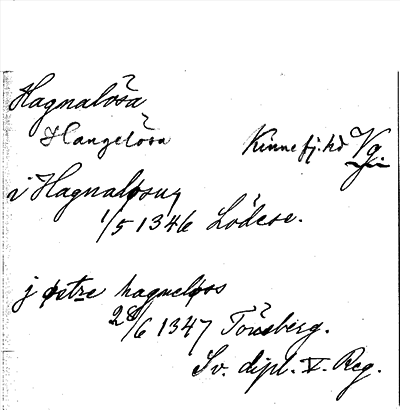 Hagnalösa
Hangelösa Kinnefj. hd Vg.
i Hagnaløsum
1/5 1346 Lödese.
j østre hagneløos
28/6 1347 Tönsberg.
Sv. dipl. V. Reg.